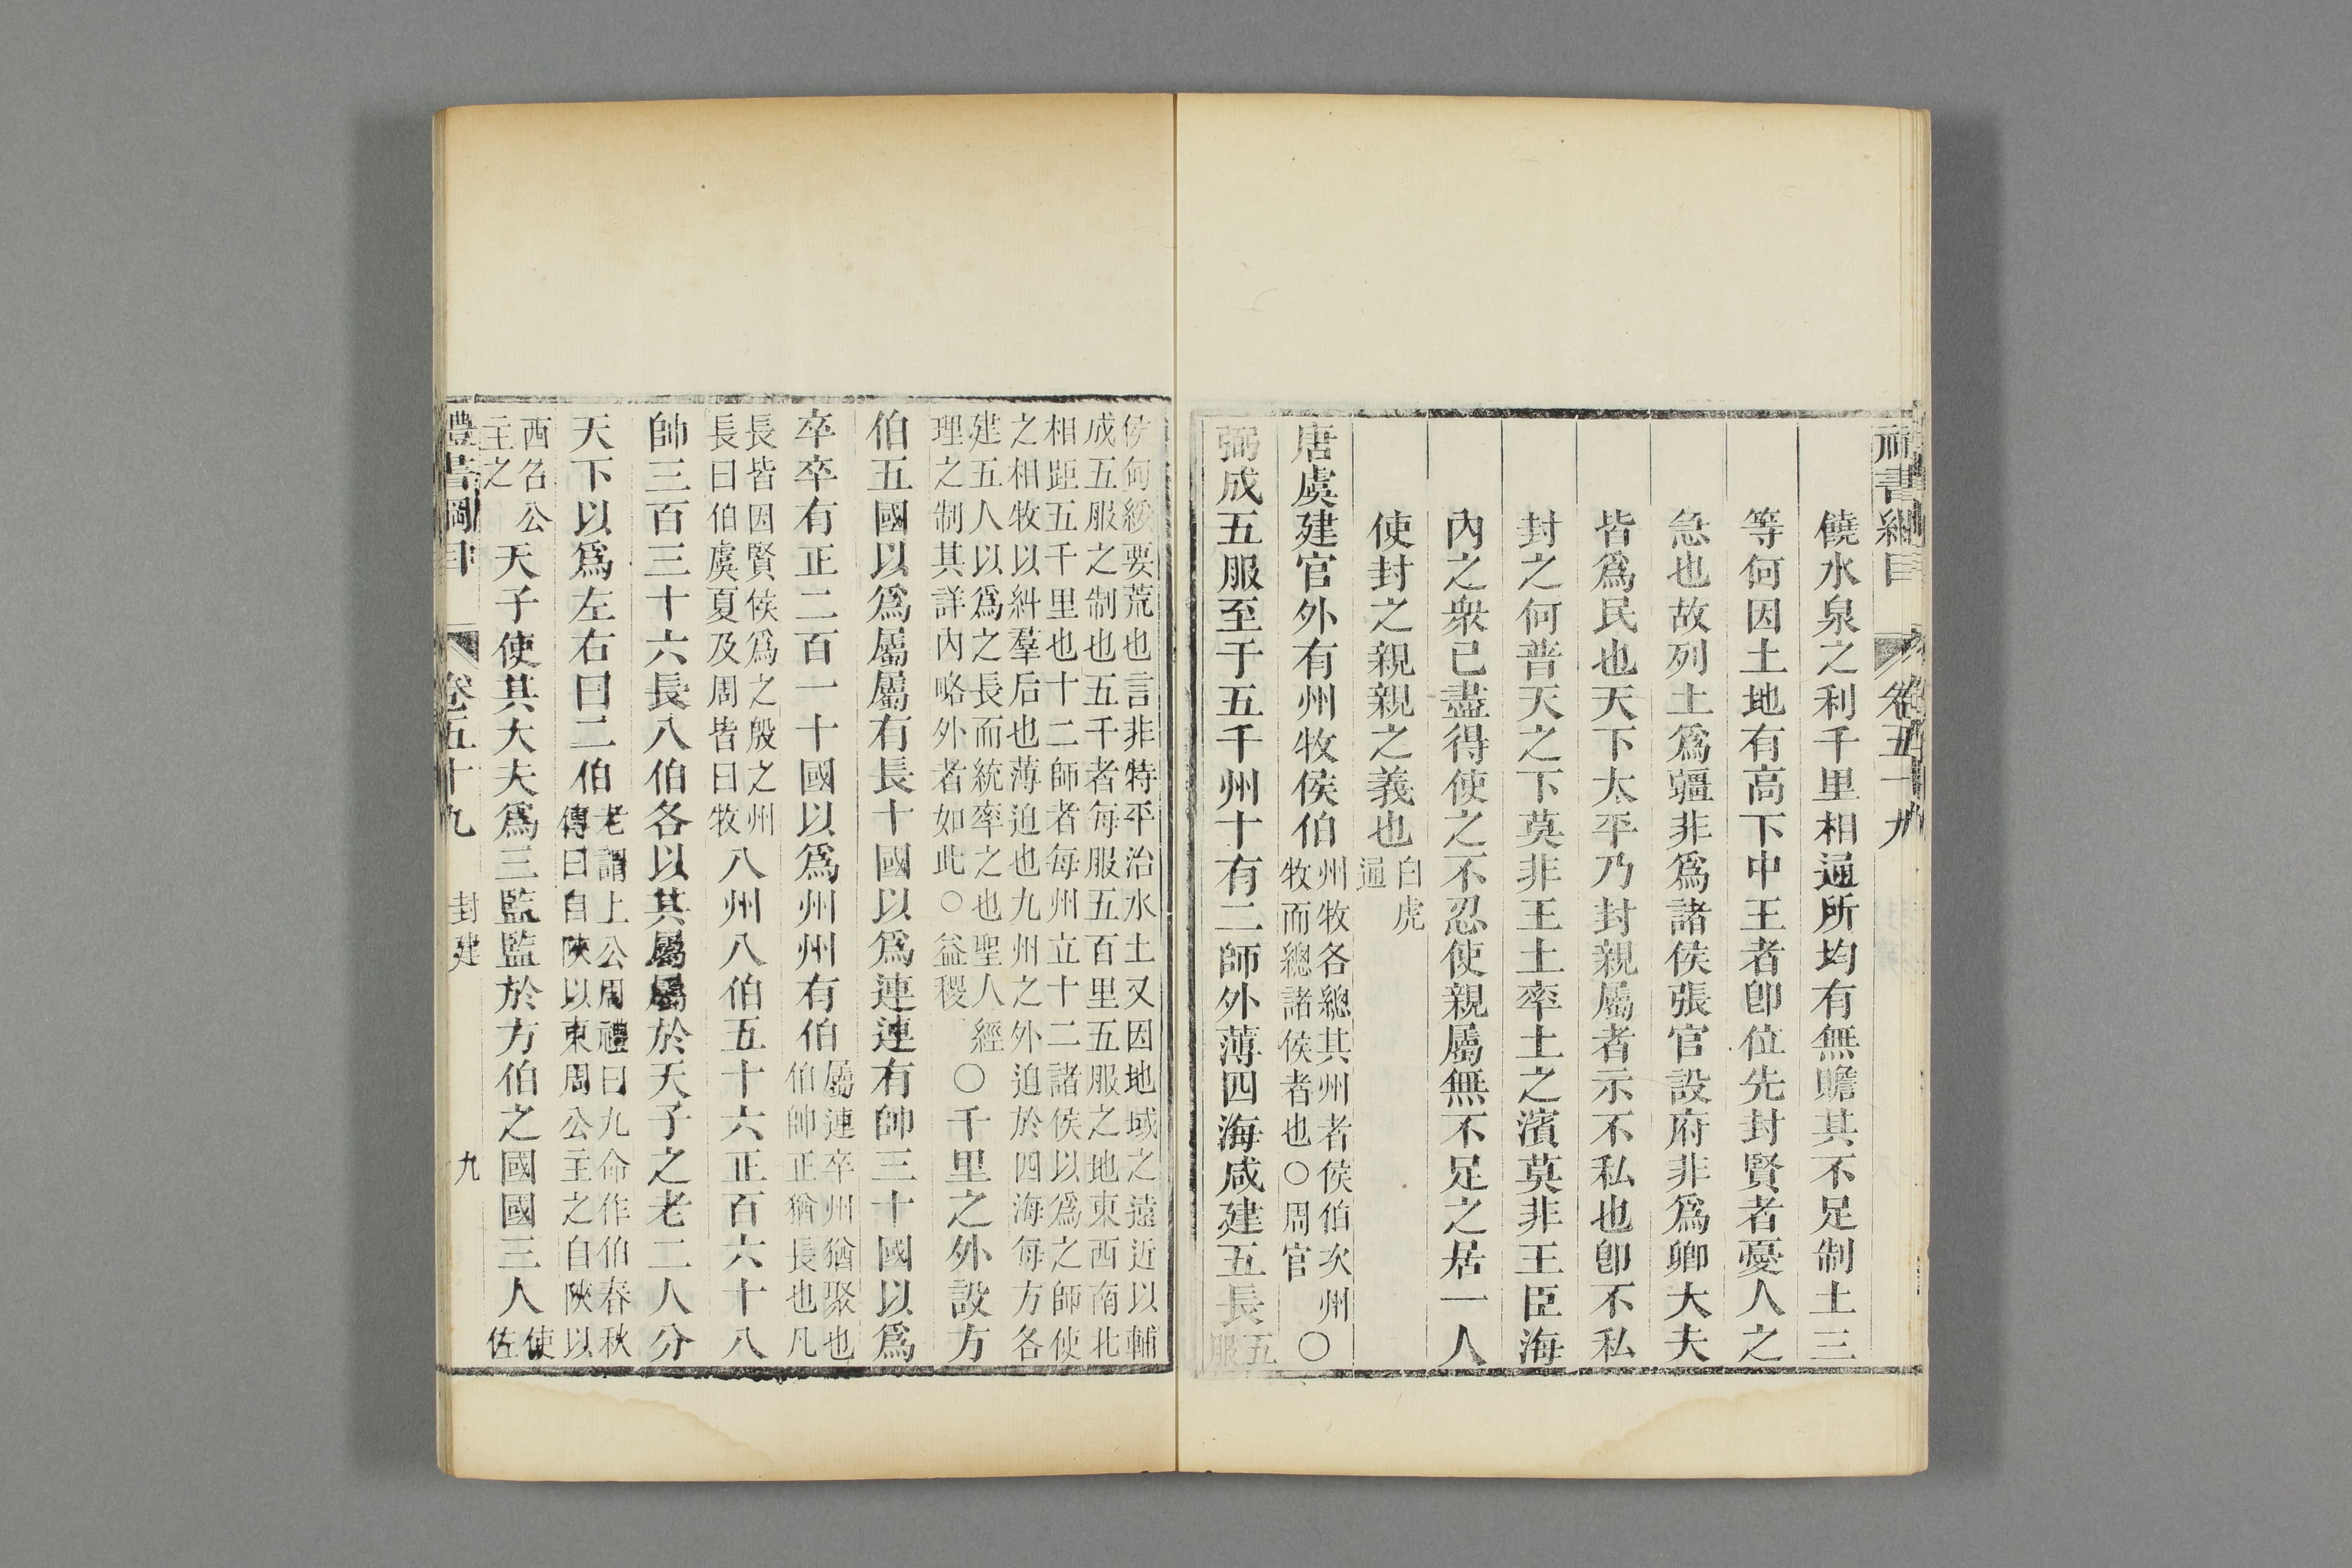 禮書綱目 卷五十九
饒水泉之利千里相通所均有無贍其不足制土三
等何因土地有高下中王者卽位先封賢者憂人之
急也故列土爲疆非爲諸侯張官設府非爲卿大夫
皆爲民也天下太平乃封親屬者示不私也卽不私
封之何普天之下莫非王土率土之濱莫非王臣海
內之衆已盡得使之不忍使親屬無不足之居一人
使封之親親之義也白虎
通
唐虞建官外有州牧侯伯州牧各總其州者侯伯次州
牧而總諸侯者也○周官
○
弼成五服至于五千州十有二師外薄四海咸建五長五
服
侯甸綏要荒也言非特平治水土又因地域之遠近以輔
成五服之制也五千者每服五百里五服之地東西南北
相距五千里也十二師者每州立十二諸侯以爲之師使
之相牧以糾羣后也薄迫也九州之外迫於四海每方各
建五人以爲之長而統率之也聖人經
理之制其詳內略外者如此○益稷
○千里之外設方
伯五國以爲屬屬有長十國以爲連連有帥三十國以爲
卒卒有正二百一十國以爲州州有伯屬連卒州猶聚也
伯帥正猶長也凡
長皆因賢侯爲之殷之州
長曰伯虞夏及周皆曰牧
八州八伯五十六正百六十八
帥三百三十六長八伯各以其屬屬於天子之老二人分
天下以爲左右曰二伯老謂上公周禮曰九命作伯春秋
傳曰自陝以東周公主之自陝以
西召公
主之
天子使其大夫爲三監監於方伯之國國三人使
佐
禮書綱目 卷五十九 封建 九